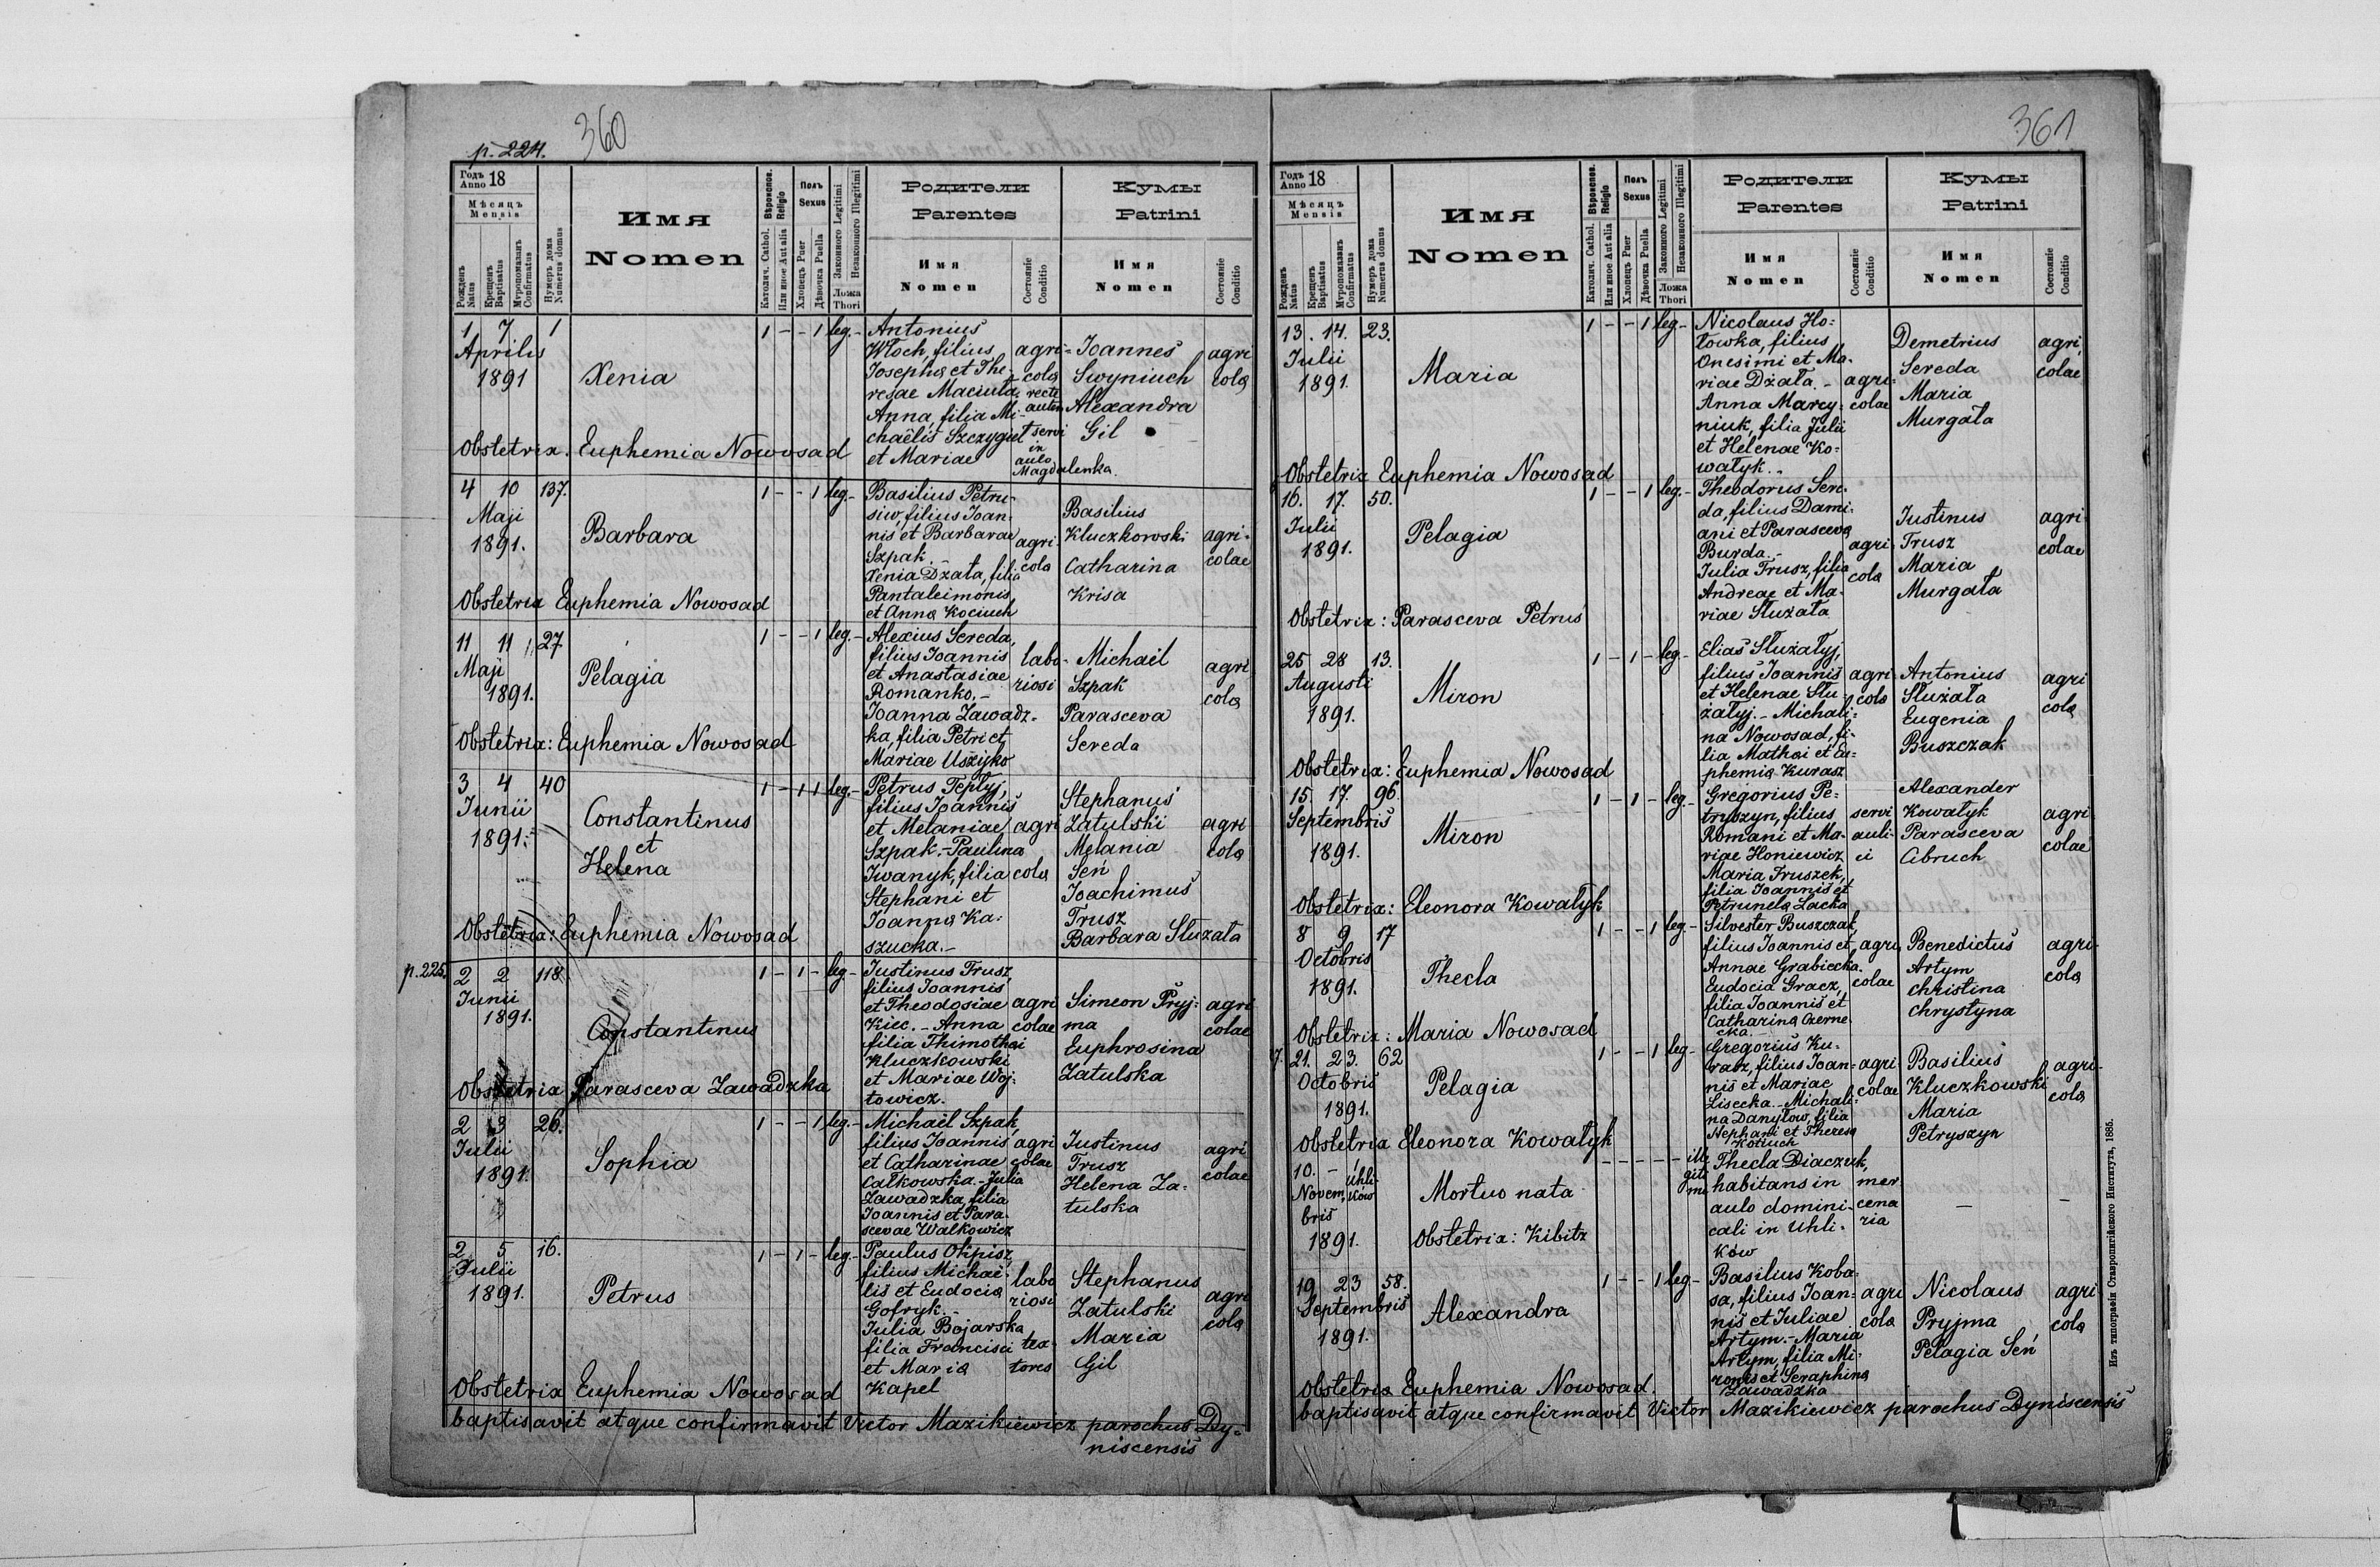 360
p. 224.
Годъ Anno 18
Мѣсяцъ Mensis
Рожденъ Natus
Крещенъ Baptisatus
Мѵропомазанъ Confirmatus
Нумеръ дома Numerus domus
Имя Nomen
Вѣроиспов. Religio
Католич. Cathol.
Или иное Aut alia
Полъ Sexus
Хлопецъ Puer
Дѣвочка Puella
Законного Legitimi
Незаконного Illegitimi
Ложа Thori
Родители Parentes
Имя Nomen
Состояніе Conditio
Кумы Patrini
Имя Nomen
Состояніе Conditio
1 7 1
Aprilis
1891
Xenia
1 - - 1 leg. -
Antonius
Włoch, filius
Josephi et The-
resae Maciuła
Anna, filia Mi-
chaëlis Szczygieł
et Mariae
agri-
cola
recte
autem
servi
in
aulo
Magdalenka.
Joannes
Swyniuch
Alexandra
Gil
agri
cola
Obstetrix. Euphemia Nowosad
4 10 137.
Maji
1891.
Barbara
1 - - 1 leg. -
Basilius Petru-
siw, filius Joan-
nis et Barbarae
Szpak. -
Xenia Dżała, filia
Pantaleimonis
et Anna Kociuch
agri-
cola
Basilius
Kluczkowski
Catharina
Krisa
agri-
colae
Obstetrix Euphemia Nowosad
11 11 27
Maji
1891.
Pelagia
1 - - 1 leg. -
Alexius Sereda,
filius Joannis
et Anastasiae
Romanko. -
Joanna Zawadz-
ka, filia Petri et
Mariae Uszyjko
labo-
riosi
Michaël
Szpak
Parasceva
Sereda
agri
cola
Obstetrix: Euphemia Nowosad
3 4 40
Junii
1891.
Constantinus
et
Helena
1 - 1 1 leg. -
Petrus Tepłyj,
filius Joannis
et Melaniae
Szpak. - Paulina
Iwanyk, filia
Stephani et
Joanna Ka-
szucka. -
agri
cola
Stephanus
Zatulski
Melania
Seń
Joachimus
Trusz
Barbara Służała
agri
cola
Obstetrix: Euphemia Nowosad
p. 225.
2 2 118
Junii
1891.
Constantinus
1 - 1 - leg -
Justinus Trusz,
filius Joannis
et Theodosiae
Kiec. - Anna
filia Thimothei
Kluczkowski
et Mariae Woj-
towicz.
agri
colae
Simeon Pryj-
ma
Euphrosina
Zatulska
agri
colae
Obstetrix Parasceva Zawadzka
2 3 26.
Julii
1891.
Sophia
1 - - 1 leg. -
Michaël Szpak,
filius Joannis
et Catharinae
Całkowska. - Julia
Zawadzka, filia
Joannis et Para-
scevae Walkowicz
agri
colae
Justinus
Trusz
Helena Za-
tulska
agri
colae
2 5 16.
Julii
1891.
Petrus
1 - 1 - leg. -
Paulus Okpisz,
filius Michaë-
lis et Eudocia
Gofryk. -
Julia Bojarska
filia Francisci
et Maria
Kapel
labo
riosi
tex-
tores
Stephanus
Zatulski
Maria
Gil
agri
cola
Obstetrix Euphemia Nowosad
baptisavit atque confirmavit Victor Mazikiewicz parochus Dy-
niscensis
361
Годъ Anno 18
Мѣсяцъ Mensis
Рожденъ Natus
Крещенъ Baptisatus
Мѵропомазанъ Confirmatus
Нумеръ дома Numerus domus
Имя Nomen
Вѣроиспов. Religio
Католич. Cathol.
Или иное Aut alia
Полъ Sexus
Хлопецъ Puer
Дѣвочка Puella
Законного Legitimi
Незаконного Illegitimi
Ложа Thori
Родители Parentes
Имя Nomen
Состояніе Conditio
Кумы Patrini
Имя Nomen
Состояніе Conditio
13. 14. 23.
Julii
1891.
Maria
1 - - 1 leg -
Nicolaus Ho-
łowka, filius
Onesimi et Ma-
riae Dżała. -
Anna Marcy-
niuk, filia Julii
et Helenae Ko-
wałyk. -
agri-
colae
Demetrius
Sereda
Maria
Murgała
agri
colae
Obstetrix Euphemia Nowosad
16. 17. 50.
Julii
1891.
Pelagia
1 - - 1 leg. -
Theodorus Sere-
da, filius Dami-
ani et Parasceva
Burda. -
Julia Trusz, filia
Andreae et Ma-
riae Służała
agri
cola
Justinus
Trusz
Maria
Murgała
agri
colae
Obstetrix: Parasceva Petruś
25 28 13.
Augusti
1891.
Miron
1 - 1 - leg -
Elias Służałyj,
filius Joannis
et Helenae Słu-
żałyj. - Michali-
na Nowosad, fi-
lia Mathei et Eu-
phemia Kurasz
agri
cola
Antonius
Służała
Eugenia
Buszczak
agri
cola
Obstetrix: Euphemia Nowosad
15. 17. 96.
Septembris
1891.
Miron
1 - 1 - leg. -
Gregorius Pe-
tryszyn, filius
Romani et Ma-
riae Honiewicz
Maria Truszek,
filia Joannis et
Petrunela Lacka
servi
auli-
ci
Alexander
Kowałyk
Parasceva
Cibruch
agri
colae
Obstetrix: Eleonora Kowałyk
8 9 17
Octobris
1891.
Thecla
1 - - 1 leg -
Silvester Buszczak,
filius Joannis et
Annae Grabiecka.
Eudocia Gracz,
filia Joannis et
Catharina Czerne-
cka. -
agri
colae
Benedictus
Artym
Christina
Chrystyna
agri-
cola
Obstetrix: Maria Nowosad
21. 23. 62
Octobris
1891.
Pelagia
1 - - 1 leg -
Gregorius Ku-
rasz, filius Joan-
nis et Mariae
Lisecka. - Michali-
na Danyłow, filia
Stephani et Theresa
Kotiuch
agri
colae
Basilius
Kluczkowski
Maria
Petryszyn
agri-
cola
Obstetrix Eleonora Kowałyk
10. - Uhli-
ków
Novem-
bris
1891.
Mortuo nata
Obstetrix: Kibitz
- - - - - ille
giti
mi
Thecla Diaczuk,
habitans in
aulo domini-
cali in Uhli-
ków
mer
cena
ria
- -
19 23 58.
Septembris
1891.
Alexandra
1 - - 1 leg -
Basilius Koba-
sa, filius Joan-
nis et Juliae
Artym. - Maria
Artym, filia Mi-
ronis et Seraphina
Zawadzka
agri
cola
Nicolaus
Pryjma
Pelagia Seń
agri
cola
Obstetrix Euphemia Nowosad.
baptisavit atque confirmavit Victor Mazikiewicz parochus Dyniscensis
Изъ типографіи Ставропигійского Института, 1885.